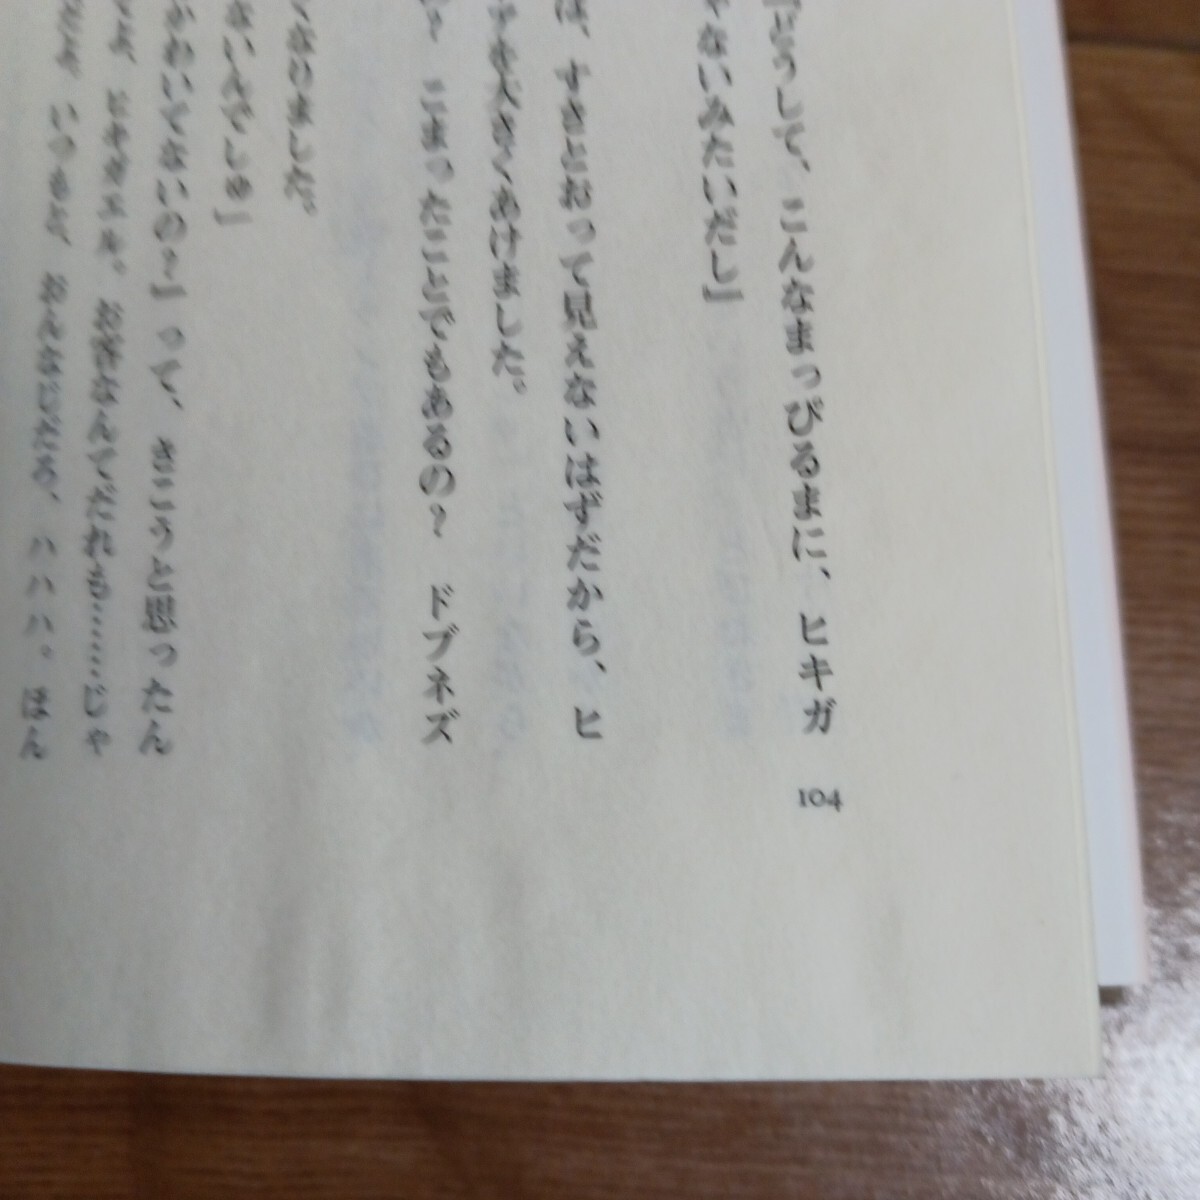 どうして、こんなまっぴるまに、ヒキガ
ないみたいだし」
は、すきとおって見えないはずだから、ヒ
を大きくあけました。
？　こまったことでもあるの？　ドブネズ
なりました。
ないんでしゅ」
かわいくないの？」って、きこうと思ったん
ヒキガエル。お客なんてだれも……じゃ
いつもと、おんなじだろ、ハハハ。ほん
104